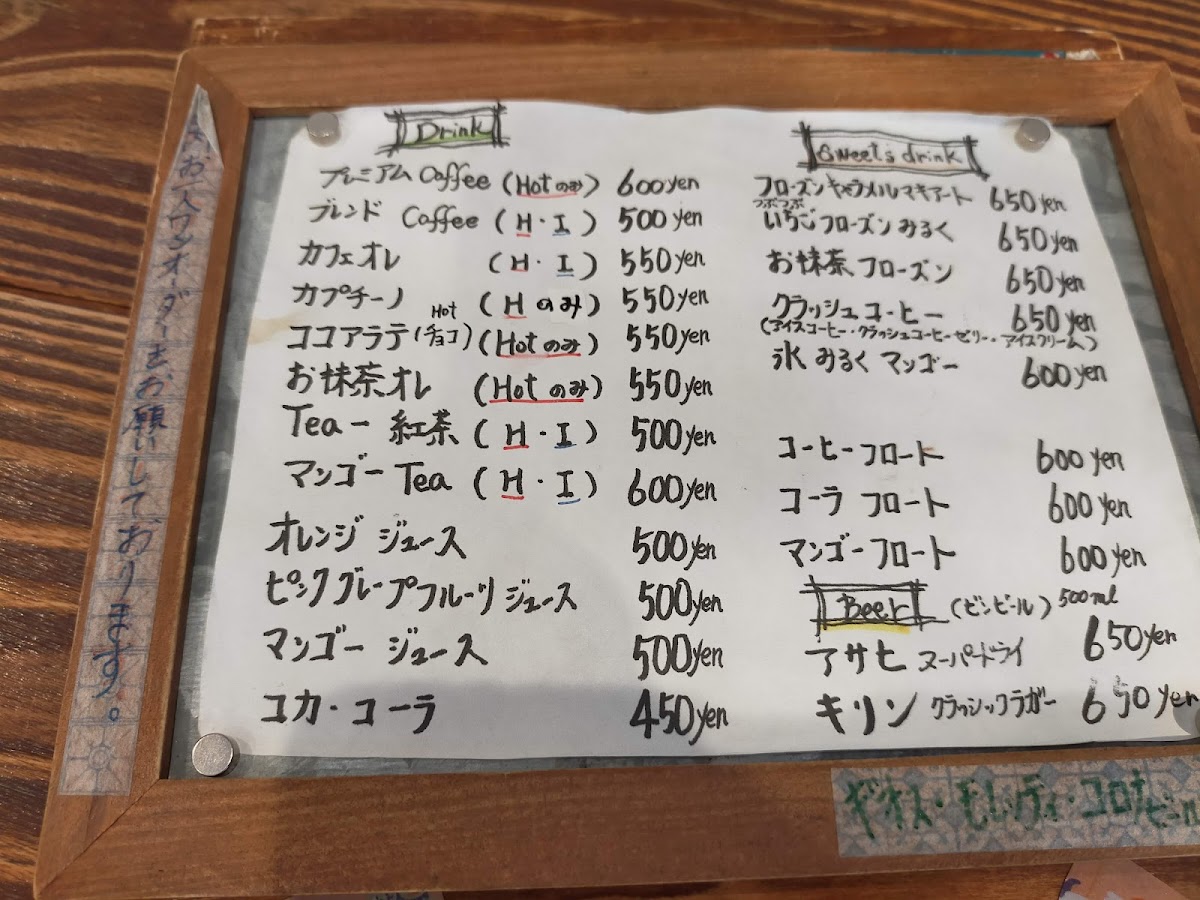 お一人ワンオーダーをお願いしております。
Drink
プレミアム Coffee (Hotのみ) 600yen
ブレンド Coffee (H・I) 500yen
カフェオレ (H・I) 550yen
カプチーノ (Hのみ) 550yen
Hot
ココアラテ(チョコ) (Hotのみ) 550yen
お抹茶オレ (Hotのみ) 550yen
Tea ー 紅茶 (H・I) 500yen
マンゴー Tea (H・I) 600yen
オレンジ ジュース 500yen
ピンクグレープフルーツ ジュース 500yen
マンゴー ジュース 500yen
コカ・コーラ 450yen
Sweets drink
フローズンキャラメルマキアート 650yen
つぶつぶ
いちごフローズンみるく 650yen
お抹茶フローズン 650yen
クラッシュコーヒー 650yen
(アイスコーヒー・クラッシュコーヒーゼリー・アイスクリーム)
氷みるくマンゴー 600yen
コーヒーフロート 600yen
コーラ フロート 600yen
マンゴーフロート 600yen
Beer (ビンビール) 500ml
アサヒ スーパードライ 650yen
キリン クラシックラガー 650yen
モレッティ・コロナビール